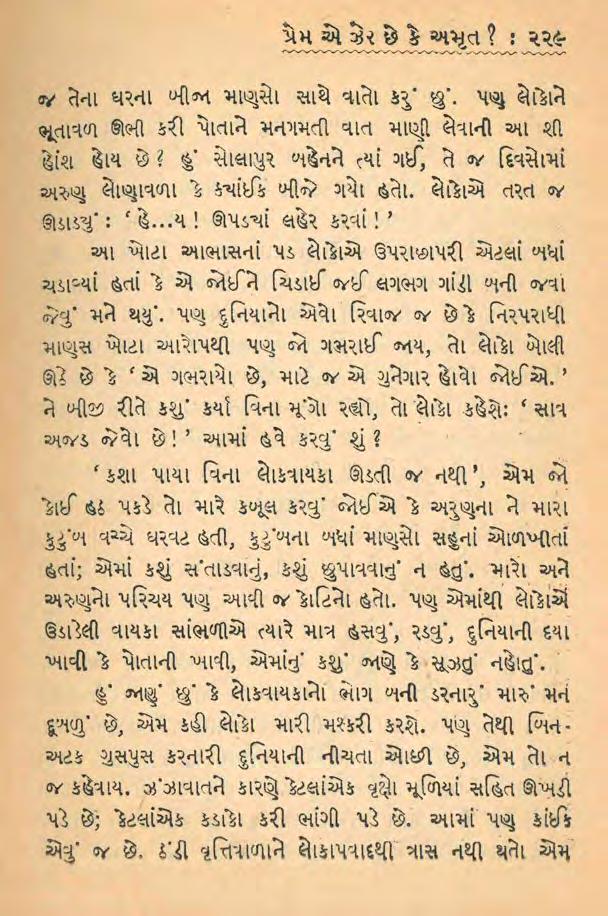 પ્રેમ એ ઝેર છે કે અમૃત? : ૨૨૯
જ તેના ઘરના બીજા માણસો સાથે વાતો કરું છું. પણ લોકોને
ભૂતાવળ ઊભી કરી પોતાને મનગમતી વાત માણી લેવાની આ શી
હોંશ હોય છે? હું સોલાપુર બહેનને ત્યાં ગઈ, તે જ દિવસોમાં
અરુણ લોણાવળા કે ક્યાંઈક બીજે ગયો હતો. લોકોએ તરત જ
ઊડાડ્યું : ‘ હે...ય ! ઊપડ્યાં લહેર કરવાં ! ’
આ ખોટા આભાસનાં પડ લોકોએ ઉપરાછાપરી એટલાં બધાં
ચડાવ્યાં હતાં કે એ જોઈને ચિડાઈ જઈ લગભગ ગાંડી બની જવા
જેવું મને થયું. પણ દુનિયાનો એવો રિવાજ જ છે કે નિરપરાધી
માણસ ખોટા આરોપથી પણ જો ગભરાઈ જાય, તો લોકો બોલી
ઊઠે છે કે ‘ એ ગભરાયો છે, માટે જ એ ગુનેગાર હોવો જોઈએ. ’
ને બીજી રીતે કશું કર્યા વિના મૂંગો રહ્યો, તો લોકો કહેશે: ‘ સાવ
અજડ જેવો છે! ’ આમાં હવે કરવું શું ?
‘ કશા પાયા વિના લોકવાયકા ઊડતી જ નથી ’, એમ જો
કોઈ હઠ પકડે તો મારે કબૂલ કરવું જોઈએ કે અરુણના ને મારા
કુટુંબ વચ્ચે ઘરવટ હતી, કુટુંબના બધાં માણસો સહુનાં ઓળખીતાં
હતાં; એમાં કશું સંતાડવાનું, કશું છુપાવવાનું ન હતું. મારો અને
અરુણનો પરિચય પણ આવી જ કોટિનો હતો. પણ એમાંથી લોકોએ
ઉડાડેલી વાયકા સાંભળીએ ત્યારે માત્ર હસવું, રડવું, દુનિયાની દયા
ખાવી કે પોતાની ખાવી, એમાંનું કશું જાણે કે સૂઝતું નહોતું.
હું જાણું છું કે લોકવાયકાનો ભોગ બની ડરનારું મારું મન
દૂબળું છે, એમ કહી લોકો મારી મશ્કરી કરશે. પણ તેથી બિન-
અટક ગુસપુસ કરનારી દુનિયાની નીચતા ઓછી છે, એમ તો ન
જ કહેવાય. ઝંઝાવાતને કારણે કેટલાંએક વૃક્ષો મૂળિયાં સહિત ઊખડી
પડે છે; કેટલાંએક કડાકો કરી ભાંગી પડે છે. આમાં પણ કાંઈક
એવું જ છે. ઠંડી વૃત્તિવાળાને લોકાપવાદથી ત્રાસ નથી થતો એમ